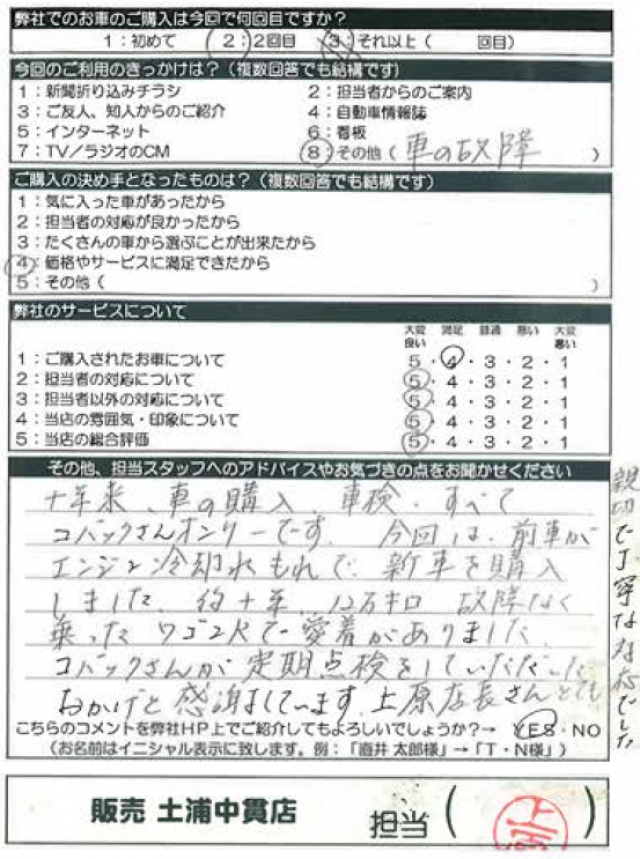 弊社でのお車のご購入は今回で何回目ですか？
1：初めて 2：2回目 3：それ以上（ 回目）
今回のご利用のきっかけは？（複数回答でも結構です）
1：新聞折り込みチラシ 2：担当者からのご案内
3：ご友人、知人からのご紹介 4：自動車情報誌
5：インターネット 6：看板
7：TV／ラジオのCM 8：その他（車の故障 ）
ご購入の決め手となったものは？（複数回答でも結構です）
1：気に入った車があったから
2：担当者の対応が良かったから
3：たくさんの車から選ぶことが出来たから
4：価格やサービスに満足できたから
5：その他（ ）
弊社のサービスについて
大変良い 満足 普通 悪い 大変悪い
1：ご購入されたお車について 5・4・3・2・1
2：担当者の対応について 5・4・3・2・1
3：担当者以外の対応について 5・4・3・2・1
4：当店の雰囲気・印象について 5・4・3・2・1
5：当店の総合評価 5・4・3・2・1
その他、担当スタッフへのアドバイスやお気づきの点をお聞かせください
十年来、車の購入、車検、すべて
コバックさんオンリーです。今回は、前車が
エンジン冷却水もれで、新車を購入
しました。約十年、12万キロ 故障なく
乗ったワゴンRで愛着がありました。
コバックさんが定期点検をしていただいた
おかげと感謝しています。上原店長さんとても
親切で丁寧な対応でした。
こちらのコメントを弊社HP上でご紹介してもよろしいでしょうか？→ YES・NO
（お名前はイニシャル表示に致します。例：「直井 太郎様」→「T・N様」）
販売 土浦中貫店 担当（ 上原 ）